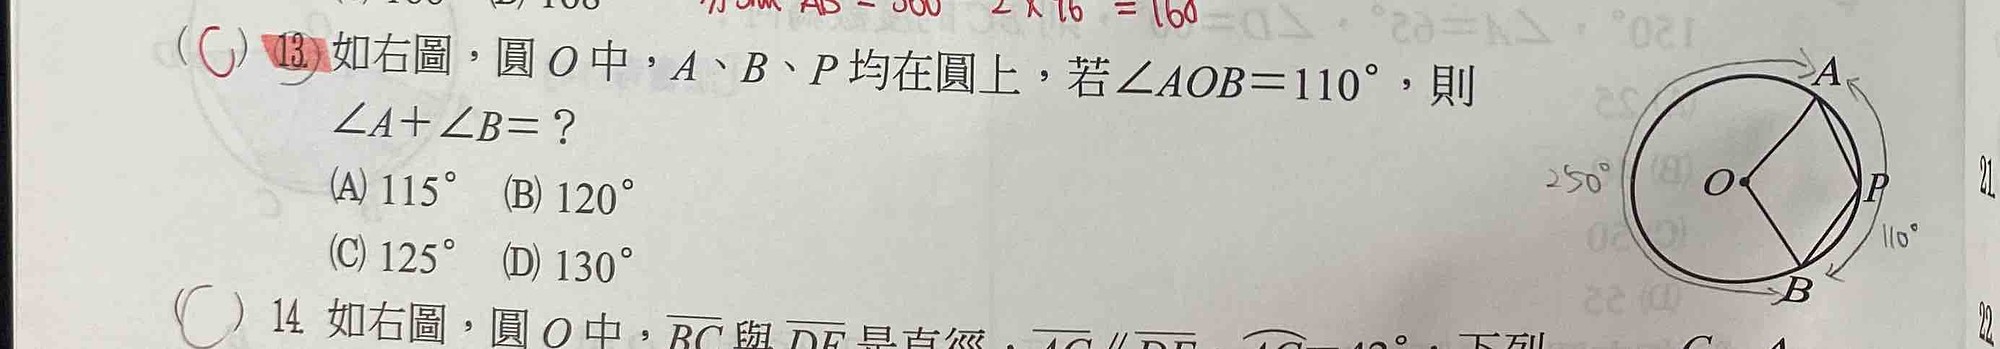 = 160
(C) 13. 如右圖，圓 O 中，A、B、P 均在圓上，若∠AOB＝110°，則
∠A＋∠B＝？
(A) 115° (B) 120°
(C) 125° (D) 130°
A
O
P
B
250°
110°
21
( ) 14. 如右圖，圓 O 中，BC 與 DE 是直徑，
下列
22